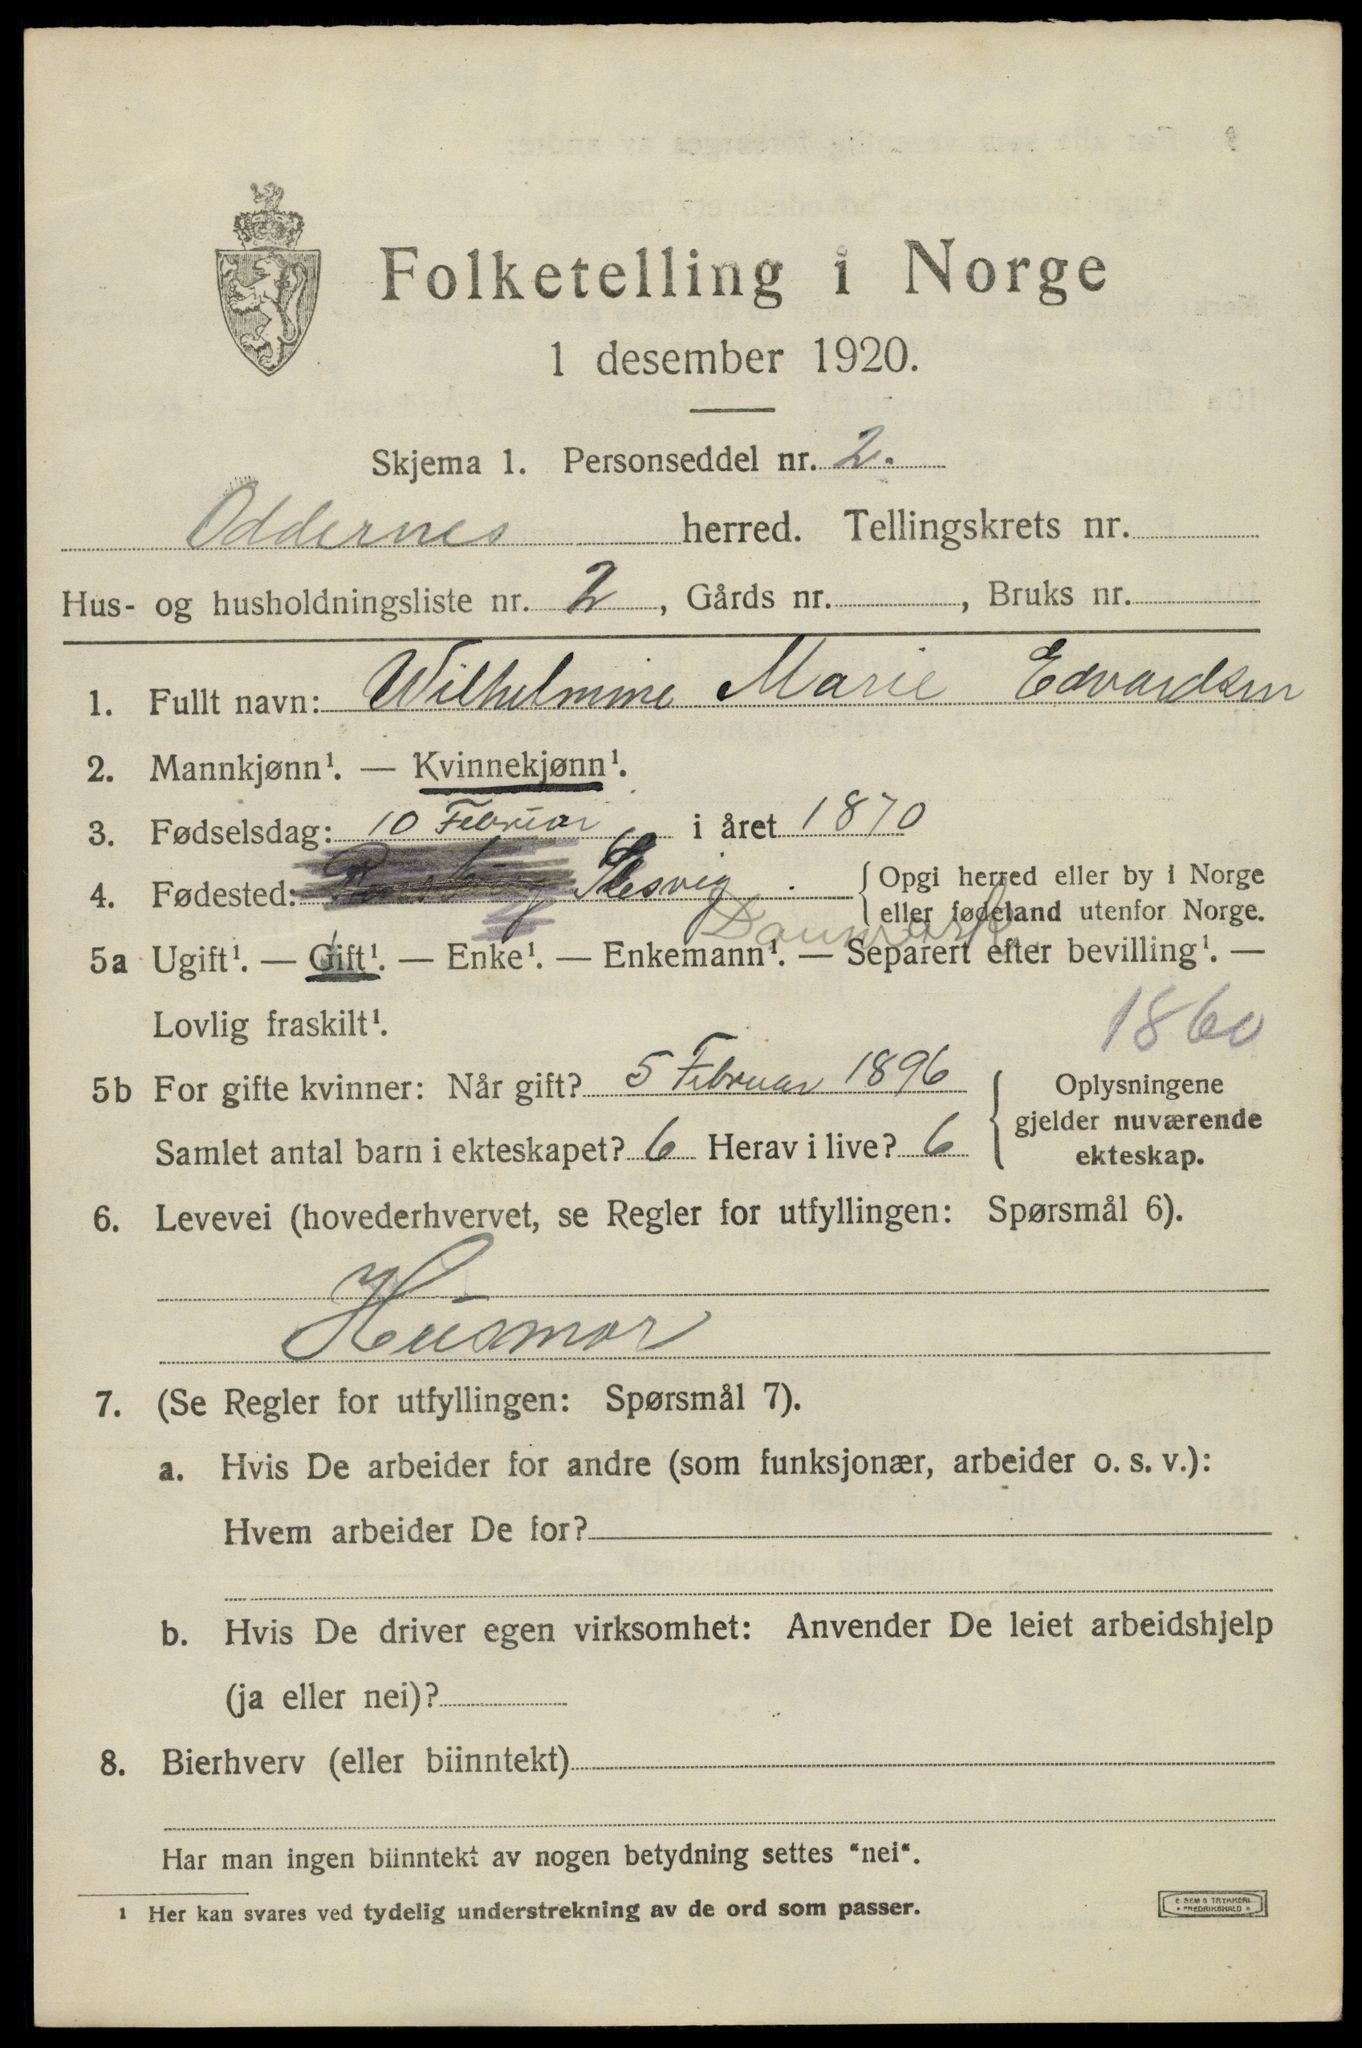 Folketelling i Norge
1 desember 1920.
Skjema 1. Personseddel nr. 2.
Oddernes herred. Tellingskrets nr.
Hus- og husholdningsliste nr. 2, Gårds nr., Bruks nr.
1. Fullt navn: Wilhelmine Marie Edvardsen
2. Mannkjønn¹. — Kvinnekjønn¹.
3. Fødselsdag: 10 Februar i året 1870
4. Fødested: Slesvig { Opgi herred eller by i Norge
eller fødeland utenfor Norge.
Danmark
5a Ugift¹. — Gift¹. — Enke¹. — Enkemann¹. — Separert efter bevilling¹. —
Lovlig fraskilt¹.
1860
5b For gifte kvinner: Når gift? 5 Februar 1896
Samlet antal barn i ekteskapet? 6 Herav i live? 6
{ Oplysningene
gjelder nuværende
ekteskap.
6. Levevei (hovederhvervet, se Regler for utfyllingen: Spørsmål 6).
Husmor
7. (Se Regler for utfyllingen: Spørsmål 7).
a. Hvis De arbeider for andre (som funksjonær, arbeider o. s. v.):
Hvem arbeider De for?
b. Hvis De driver egen virksomhet: Anvender De leiet arbeidshjelp
(ja eller nei)?
8. Bierhverv (eller biinntekt)
Har man ingen biinntekt av nogen betydning settes "nei".
¹ Her kan svares ved tydelig understrekning av de ord som passer.
E SEM S TRYKKERI
FREDRIKSHALD